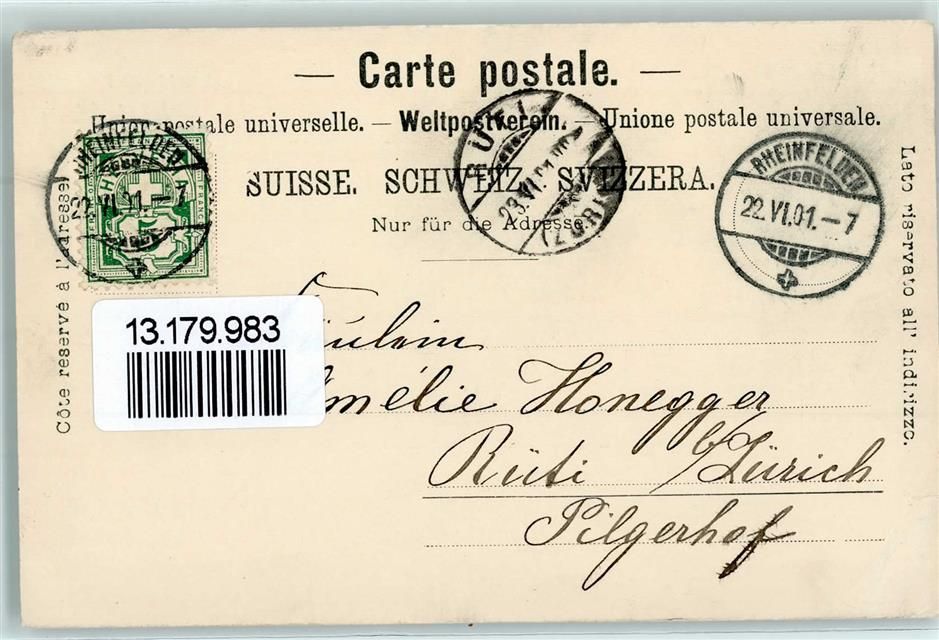 — Carte postale. —
Union postale universelle. — Weltpostverein. — Unione postale universale.
SUISSE. SCHWEIZ. SVIZZERA.
Nur für die Adresse.
Côte reservé à l'adresse.
Lato riservato all' indirizzo.
RHEINFELDEN
22.VI.01.–7
RÜTI
23.VI.01.
(ZÜRICH)
RHEINFELDEN
22.VI.01.–7
13.179.983
äulein
mélie Honegger
Rüti b/Zürich
Pilgerhof